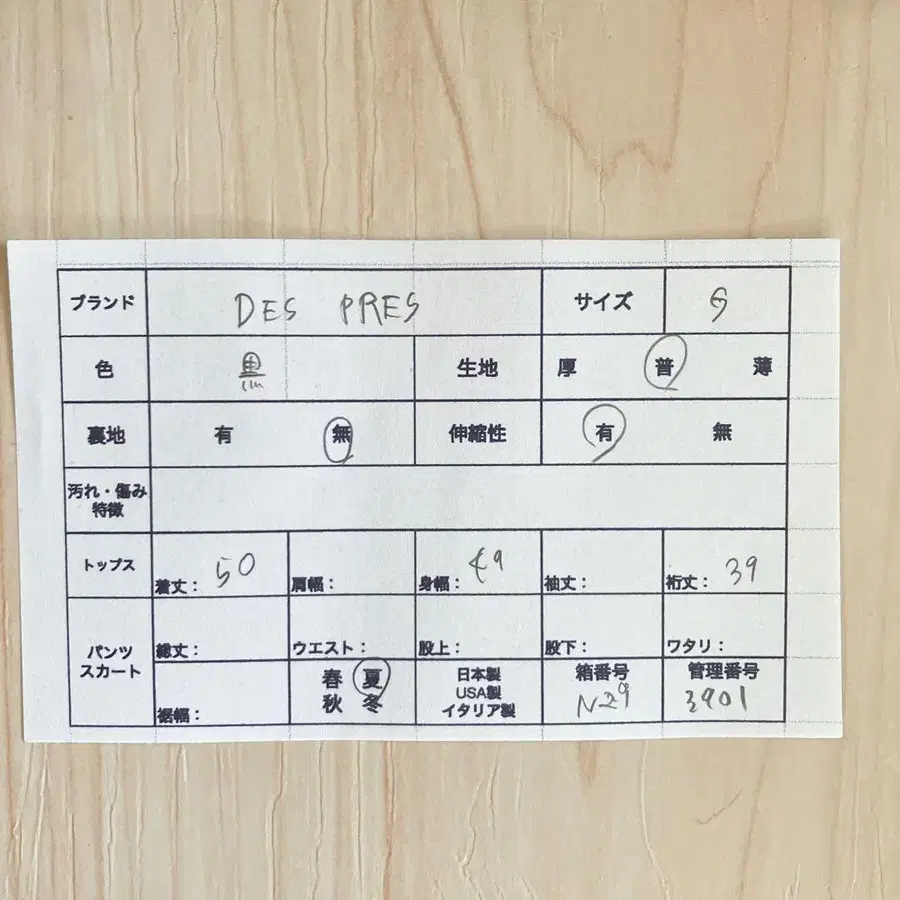 ブランド DES PRES サイズ S
色 黒 生地 厚 普 薄
裏地 有 無 伸縮性 有 無
汚れ・傷み
特徴
トップス 着丈: 50 肩幅: 身幅: 49 袖丈: 裄丈: 39
パンツ
スカート
総丈: ウエスト: 股上: 股下: ワタリ:
裾幅:
春 夏
秋 冬
日本製
USA製
イタリア製
箱番号
N29
管理番号
3901